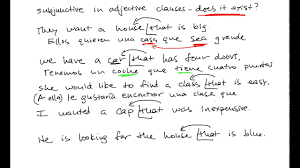 subjunctive in adjective clauses - does it exist?
They want a house/that is big
Ellos quieren una casa que sea grande
we have a car/that has four doors.
Tenemos un coche que tiene cuatro puertas
she would like to find a class/that is easy.
(A ella) le gustaría encontrar una clase que
I wanted a cap/that was inexpensive.
He is looking for the house/that is blue.